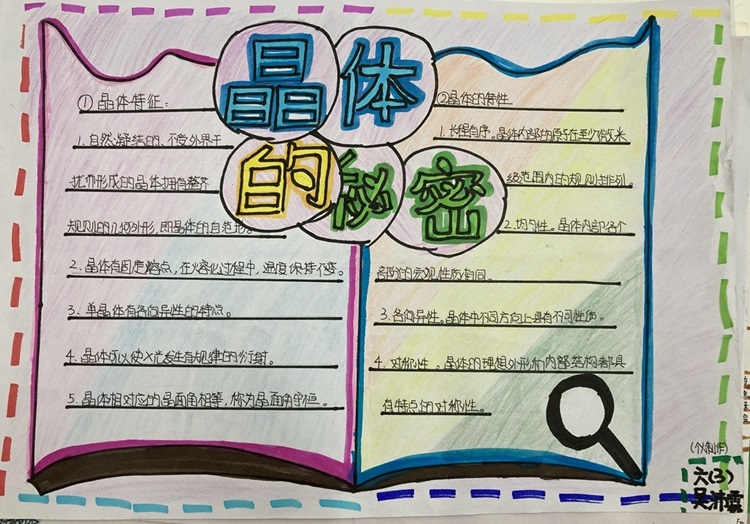 晶体
的秘密
①晶体特征：
1. 自然凝结的、不受外界干
扰而形成的晶体拥有整齐
规则的几何外形，即晶体的自范性。
2. 晶体有固定熔点，在熔化过程中，温度保持不变。
3. 单晶体有各向异性的特点。
4. 晶体可以使X光发生有规律的衍射。
5. 晶体相对应的晶面角相等，称为晶面角守恒。
②晶体的特性
1. 长程有序。晶体内部的原子在至少微米
级范围内的规则排列。
2. 均匀性。晶体内部各个
部分的宏观性质相同。
3. 各向异性。晶体中不同方向上具有不同性质。
4. 对称性。晶体的理想外形和内部结构都具
有特点的对称性。
(个人制作)
六(3)
吴沛霖